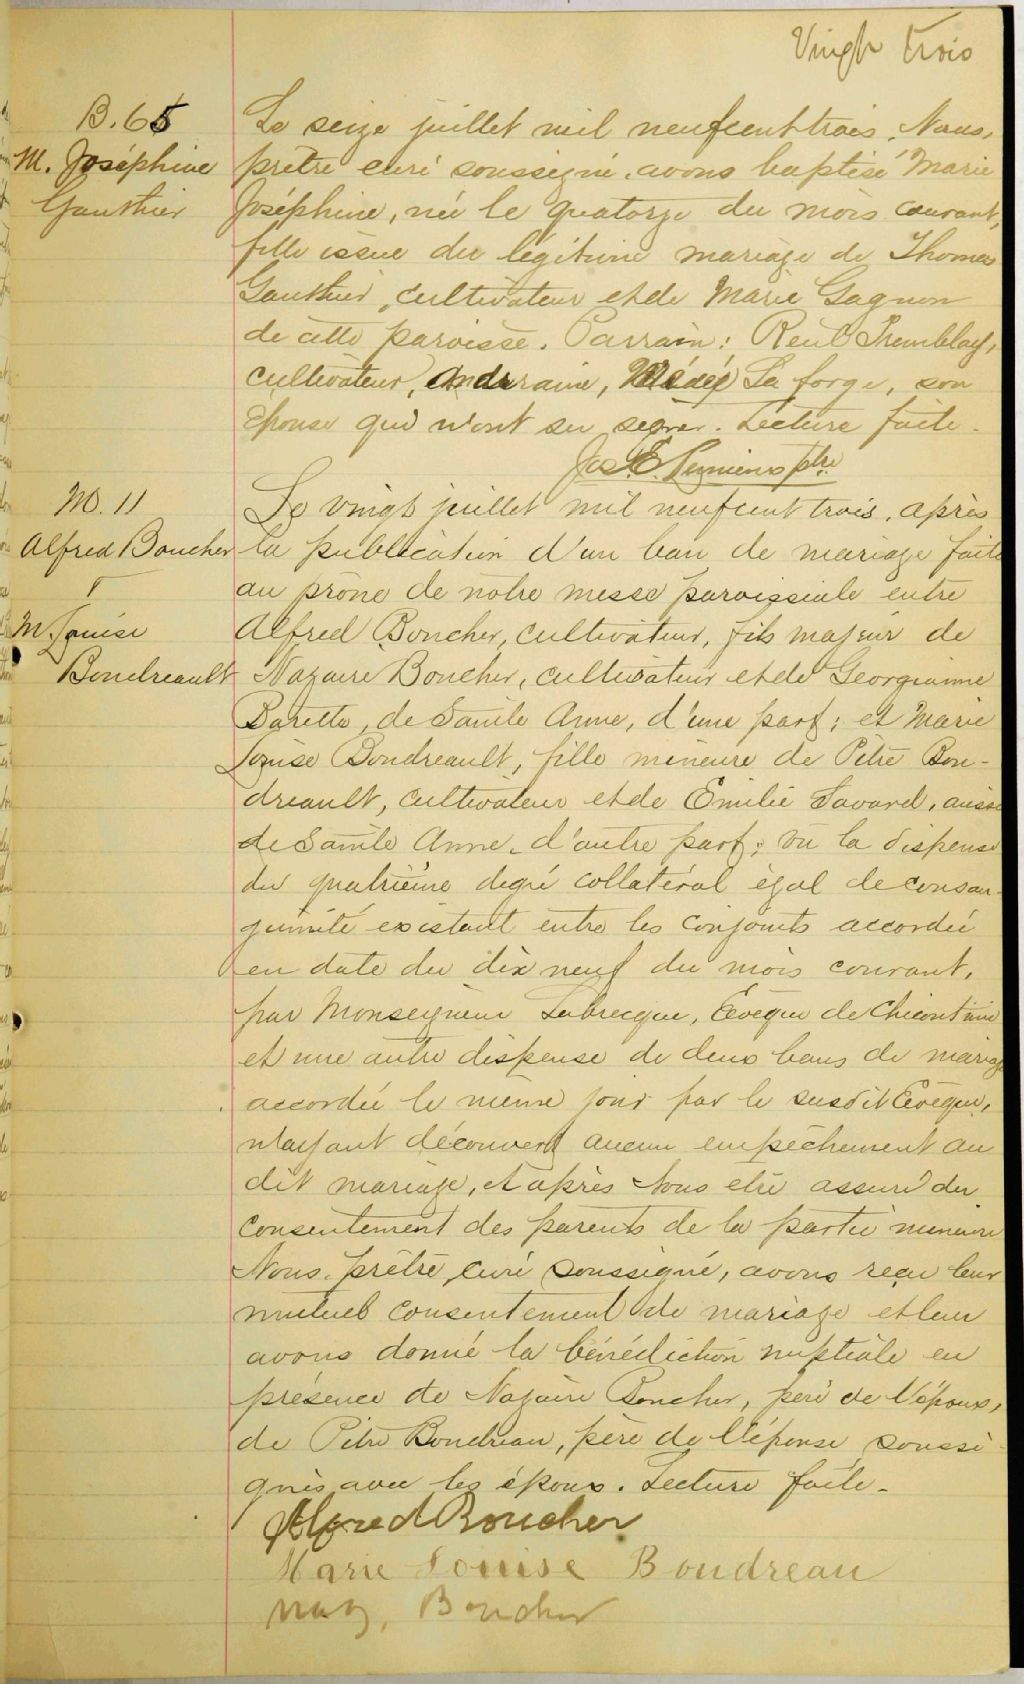 Vingt trois
B. 65
M. Joséphine
Gauthier
Le seize juillet mil neuf cent trois, Nous,
prêtre curé soussigné, avons baptisé Marie
Joséphine, née le quatorze du mois courant,
fille issue du légitime mariage de Thomas
Gauthier, cultivateur et de Marie Gagnon
de cette paroisse. Parrain: Tremblay,
cultivateur, raine, Laforge, son
épouse qui n'ont su signer. Lecture faite.
Jos. E. ptre
M. 11
Alfred Boucher
&
M. Louise
Boudreault
Le vingt juillet mil neuf cent trois, après
la publication d'un ban de mariage faite
au prône de notre messe paroissiale entre
Alfred Boucher, cultivateur, fils majeur de
Nazaire Boucher, cultivateur et de Georgianne
de Sainte Anne, d'une part; et Marie
Louise Boudreault, fille mineure de Pitre Bou-
dreault, cultivateur et de Emilie Savard, aussi
de Sainte Anne, d'autre part; vu la dispense
du quatrième degré collatéral égal de consan-
guinité existant entre les conjoints accordée
en date du dix neuf du mois courant,
par Monseigneur Labrecque, Evêque de Chicoutimi
et une autre dispense de deux bans de mariage
accordée le même jour par le susdit Evêque,
n'ayant découvert aucun empêchement au
dit mariage, et après Nous être assuré du
consentement des parents de la partie mineure
Nous, prêtre, curé soussigné, avons reçu leur
mutuel consentement de mariage et leur
avons donné la bénédiction nuptiale en
présence de Nazaire Boucher, père de l'époux,
de Pitre Boudreau, père de l'épouse soussi-
gnés avec les époux. Lecture faite.
Alfred Boucher
Marie Louise Boudreau
Naz. Boucher